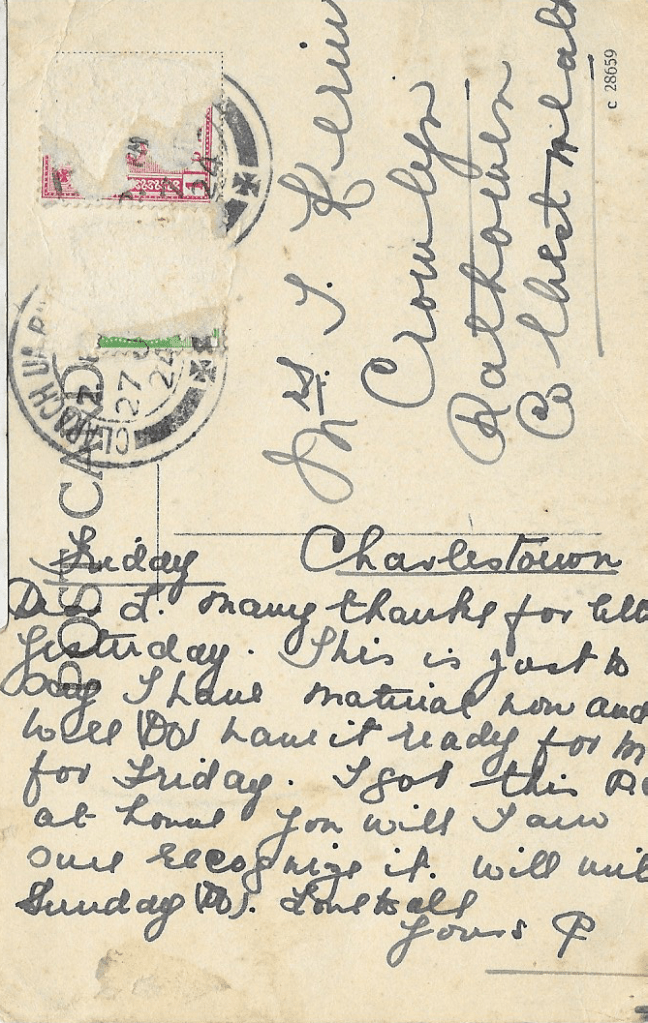 POST CARD
c 28659
CLÁRACH UA
27
24
Mrs. T. Kerin
Crowlyn
Rathowen
Co Westmeath
Friday Charlestown
Dear L. Many thanks for
Yesterday. This is just to
say I have material now and
will (DV) have it ready for
for Friday. I got this
at home you will I am
sure recognize it. Will
Sunday (DV). Love to all
Yours P